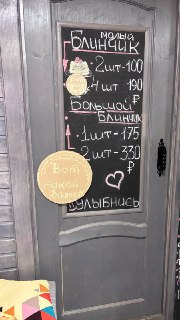 малый
Блинчик
2шт-100
4шт 190
₽
Большой
Блинчик
1шт-175
2шт-330
₽
Вот
такой
УЛЫБНИСЬ